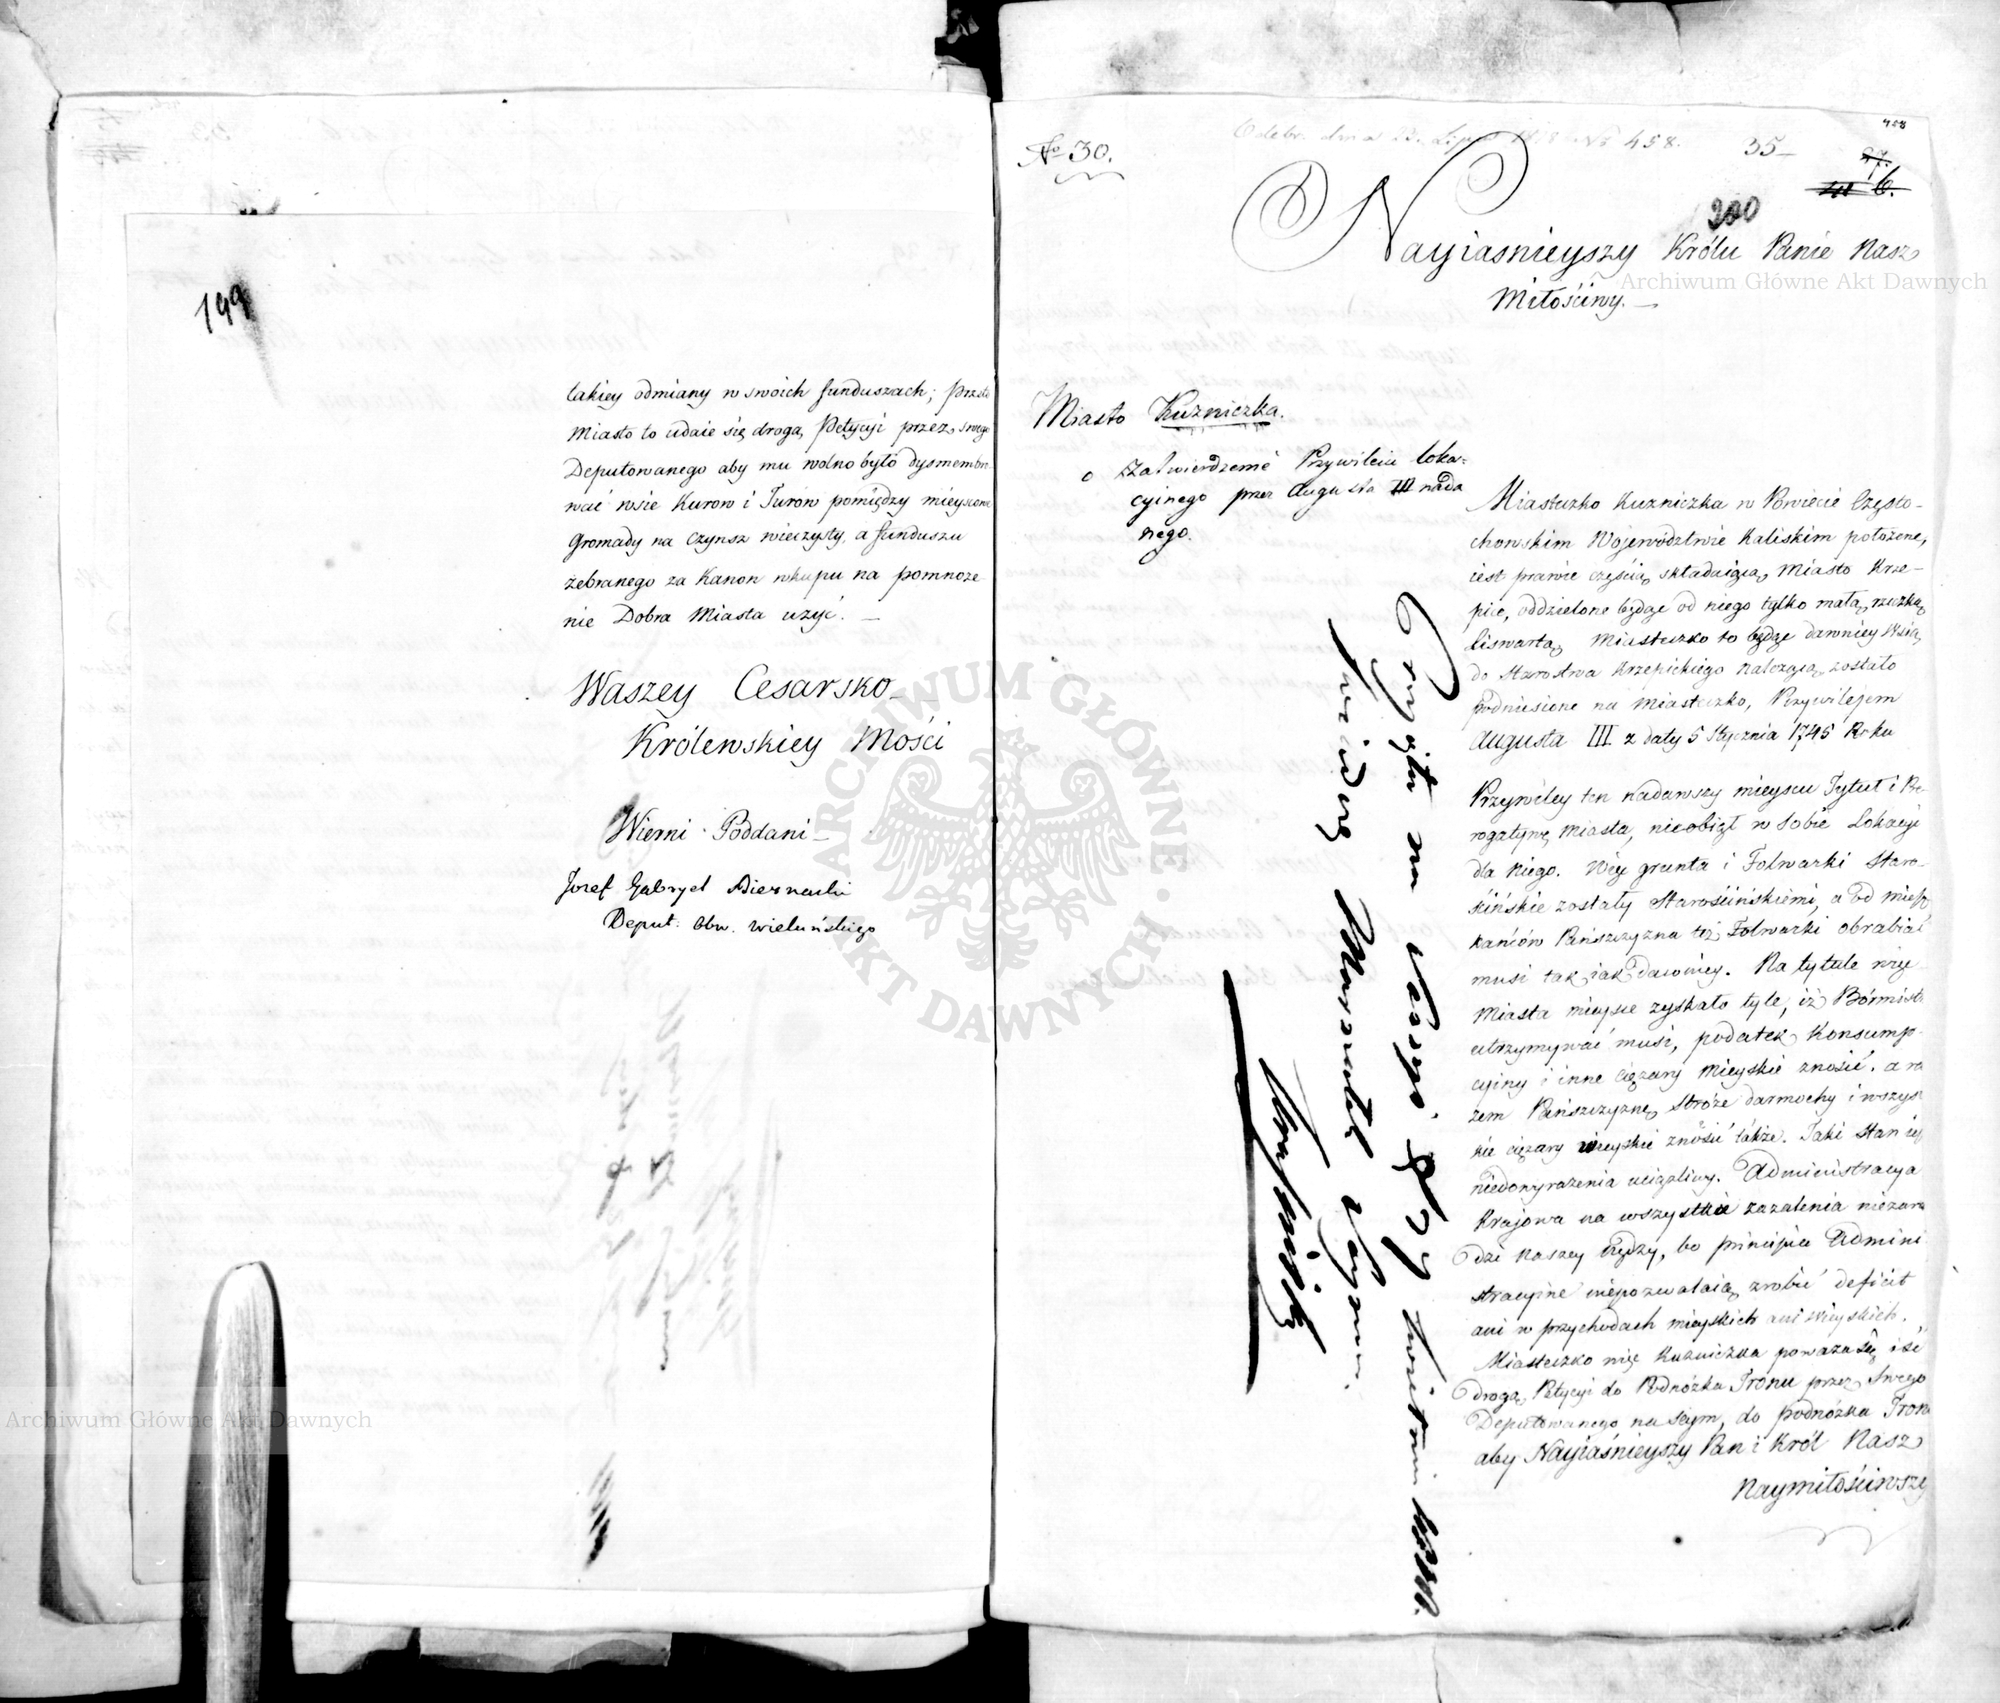 199
takiey odmiany w swoich funduszach; Przeto
Miasto to udaie się drogą Petycyi przez swego
Deputowanego aby mu wolno było dysmembro
wać wsie Kurow i Turow pomiędzy mieyscowe
Gromady na Czynsz wieczysty, a funduszu
zebranego za Kanon wkupu na pomnoże-
nie Dobra Miasta użyć. —
Waszey Cesarsko-
Królewskiey Mości
Wierni Poddani —
Jozef Gabryel Biernacki
Deput: Obw. Wieluńskiego
No 30.
Odebr. dnia Lipca No 458.
35—
458
6.
200
Nayiasnieyszy Królu Panie Nasz
Miłościwy. —
Miasto Kuzniczka.
o Zatwierdzenie Przywileiu loka-
cyinego przez Augusta III nada
nego.
Miasteczko Kuzniczka w Powiecie Często-
chowskim Województwie Kaliskim położone,
iest prawie częścią składaiącą Miasto Krze-
pice, oddzielone będąc od niego tylko małą rzeczką
Liswartą. Miasteczko to będąc dawniey Wsią,
do Starostwa Krzepickiego należącą zostało
podniesione na Miasteczko, Przywilejem
Augusta III z daty 5 Stycznia 1745 Roku
Przywiley ten nadawszy mieyscu Tytuł i Pre
rogatywę Miasta, nieobiął w sobie Lokacyi
dla niego. Więc grunta i Folwarki Staro-
ścińskie zostały Starościńskiemi, a od miesz
kańców Pańszczyzna też Folwarki obrabiać
musi tak iak dawniey. Na tytule więc
Miasta mieysce zyskało tyle, iż Bórmistrza
utrzymywać musi, podatek Konsump-
cyiny i inne ciężary Mieyskie znosić, a ra
zem Pańszczyznę, Stróże darmochy i wszyst
kie ciężary wieyskie znosić także. Taki stan iest
niedowyrażenia uciążliwy. Administracya
Krajowa na wszystkie zażalenia niezara
dzi naszey Nędzy, bo principia Admini
stracyine niepozwalaią zrobić deficit
ani w przychodach mieyskich ani Wieyskich.
Miasteczko więc Kuzniczka poważa się iść
drogą Petycyi do Podnóżka Tronu przez Swego
Deputowanego na Seym, do podnóżka Tronu
aby Nayiaśnieyszy Pan i Król Nasz
Naymiłościwszy